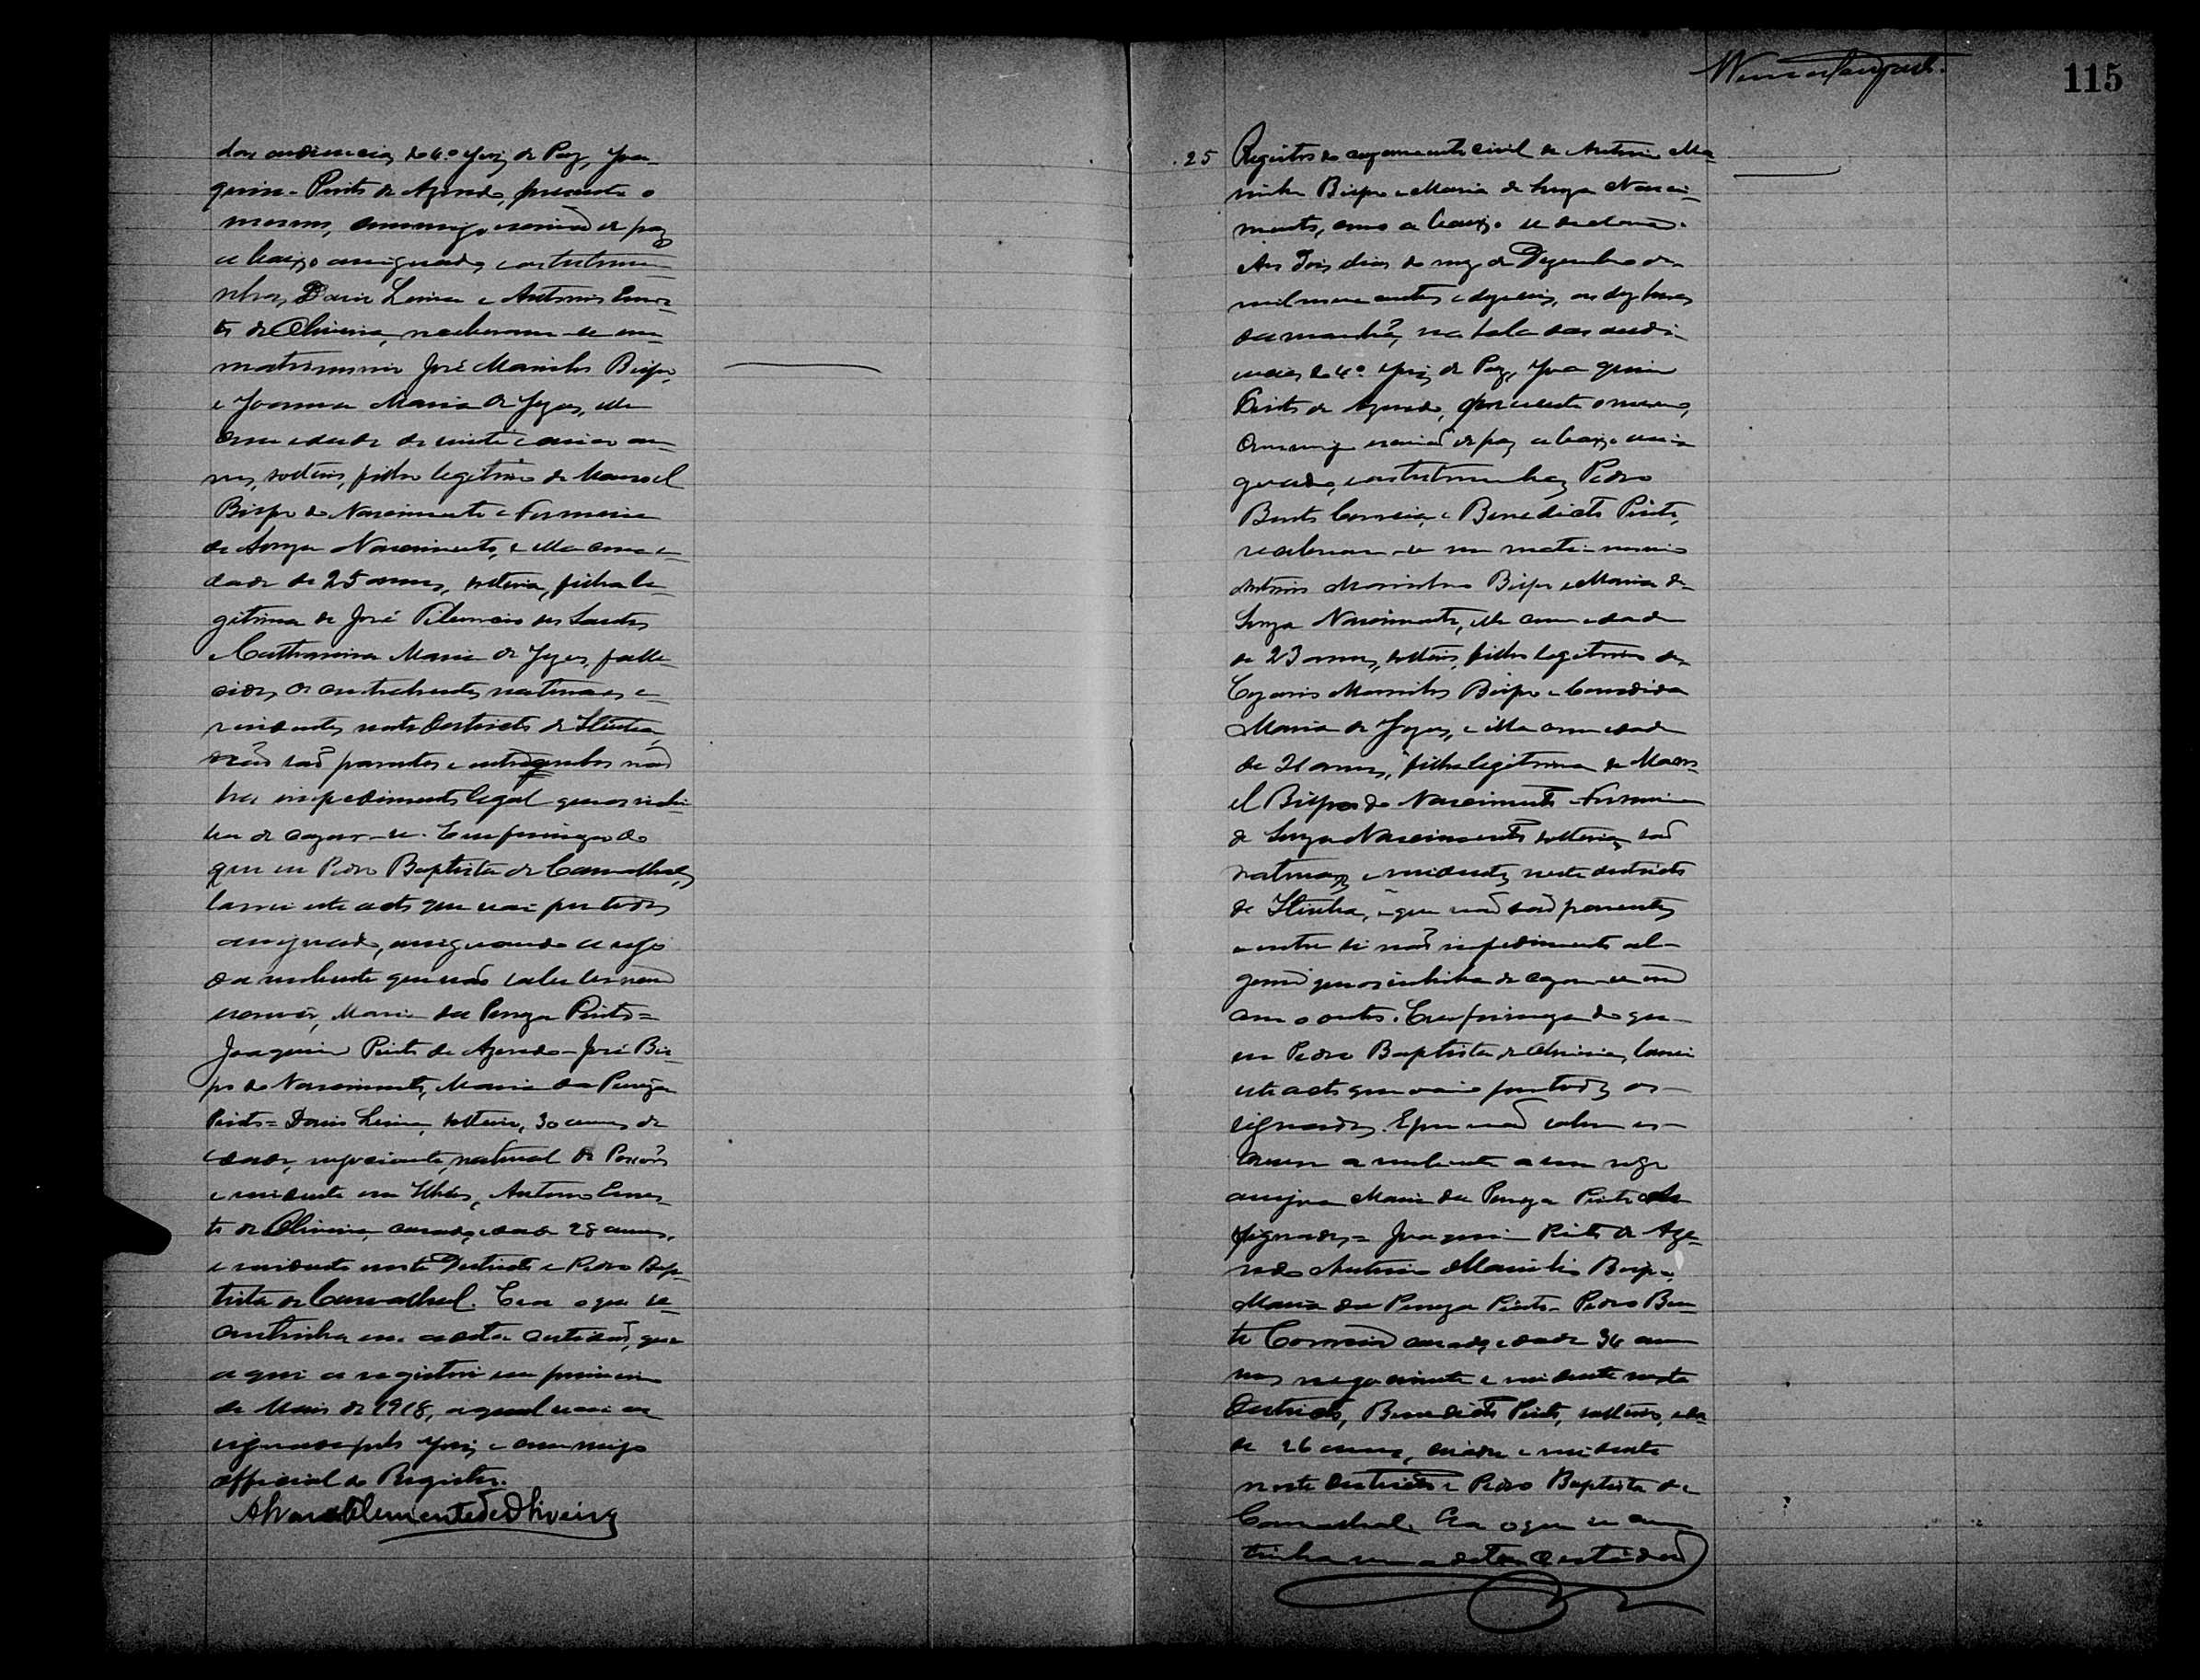 das audiencias do 4º Juiz de Paz, Joa-
quim Pinto de Azevedo, presente o
mesmo, commigo escrivão de paz
abaixo assignado, e as testemu-
nhas, Dario Lima e Antonio Ernes-
to de Oliveira, receberam-se em
matrimonio José Marinho Bispo,
e Joanna Maria de Jezus, elle
com edade de vinte e cinco an-
nos, solteiro, filho legitimo de Manoel
Bispo do Nascimento e Firmina
de Souza Nascimento, e ella com e-
dade de 25 annos, solteira, filha le-
gitima de José dos Santos
e Catharina Maria de Jezus, falle-
cidos, os contrahentes naturaes e
residentes neste Destricto de
não são parentes e entre ambos não
ha impedimento legal que os inhi-
ba de cazar-se. Em firmeza do
que eu Pedro Baptista de Carvalhal,
lavrei este acto que vai por todos
assignado, assignando a rogo
da nubente que não sabe ler nem
escrever, Maria da Pureza Pinto =
Joaquim Pinto de Azevedo = José Bis-
po do Nascimento, Maria da Pureza
Pinto = Dario Lima, solteiro, 30 annos de
edade, negociante, natural de
e residente em Ilhéos, Antonio Ernes-
to de Oliveira, casado, edade 28 annos,
e residente neste Destricto e Pedro Bap-
tista de Carvalhal. Era o que se
continha em a dita certidão, que
aqui a registrei em primeiro
de Maio de 1918, a qual vai as-
signada pelo Juiz e commigo
official do Registro.
Clemente de Oliveira
115
25 Registro do cazamento civil de Antonio Ma-
rinho Bispo e Maria de Souza Nasci-
mento, como abaixo se declara.
Aos dois dias do mez de Dezembro de
mil nove centos e dezeseis, as dez horas
da manhã, na sala das audi-
encias do 4º Juiz de Paz, Joaquim
Pinto de Azevedo, presente o mesmo,
commigo escrivão de paz abaixo assi-
gnado, e as testemunhas Pedro
Bento Correia, e Benedicto Pinto,
receberam-se em matrimonio
Antonio Marinho Bispo e Maria de
Souza Nascimento, elle com edade
de 23 annos, solteiro, filho legitimo de
Cezario Marinho Bispo e Candida
Maria de Jezus, e ella com edade
de 21 annos, filha legitima de Mano-
el Bispo do Nascimento e Firmina
de Souza Nascimento solteira, são
naturaes e residentes neste destricto
de e que não são parentes
e entre si não impedimento al-
gum que os inhiba de cazar-se um
com o outro. Em firmeza do que
eu Pedro Baptista de Oliveira, lavrei
este acto que vai por todos as-
signados. E por não saber es-
crever a nubente a seu rogo
assigna Maria da Pureza Pinto
signados = Joaquim Pinto de Aze-
vedo Antonio Marinho Bispo,
Maria da Pureza Pinto = Pedro Ben-
to Correia casado, edade 34 an-
nos negociante e residente neste
Destricto, Benedicto Pinto, solteiro, eda-
de 26 annos, e residente
neste destricto e Pedro Baptista de
Carvalhal. Era o que se con-
tinha em a dita certidão